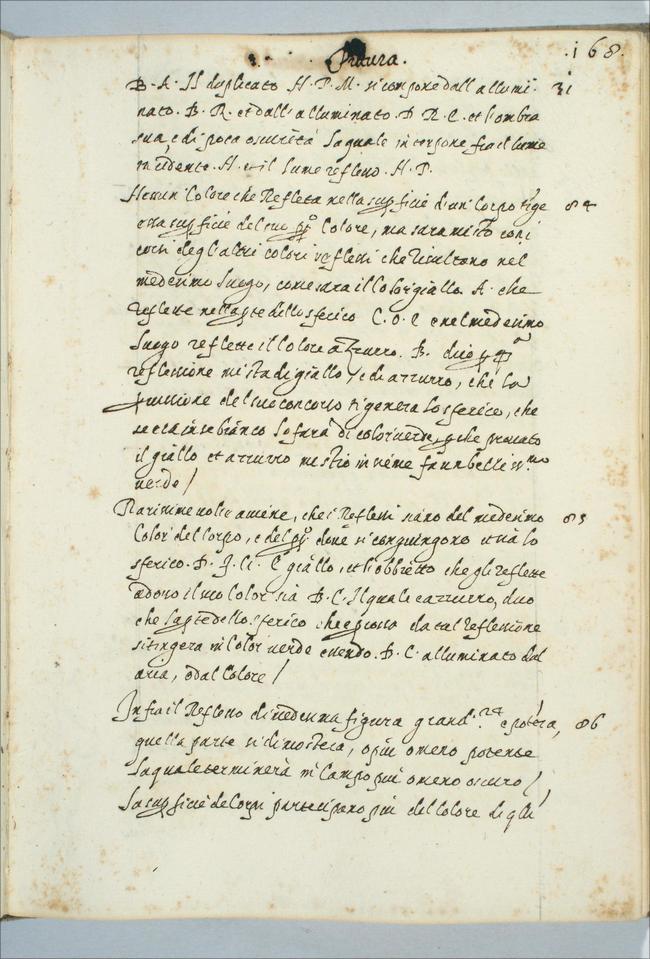 Pittura. .168.
B. A. Il duplicato H. P. M. si compone dall allumi- 31
nato. B. R. et dall alluminato. D R. C. et l'ombra
sua, e di poca oscurità laquale interpone fra il lume
incidente. H. et il lume reflesso. H. P.
Nessun Colore che Refleta nella supficie d'un Corpo tige 84
essa supficie del suo pp.º Colore, ma sara misto con i
corsi degl'altri colori reflessi che Risaltano nel
medesimo luogo, come sara il Colore giallo. A. che
reflette nella pte dello sferico C. O. E e nel medesimo
luogo reflette il Colore azzurro. B. dico p qª
reflessione mista di giallo, e di azzurro, che la
pcussione del suo concorso tigenera lo sferico, che
se era in se bianco lo fara di color verde, pche provato
il giallo et azzurro mesti insieme fa un bellissmo
verde /
Rarissime volte aviene, che i Reflessi siano del medesimo 85
Color del Corpo, e del pp.º dove si congiungono et sia lo
sferico. D. F. G. E giallo, et l'obbietto che gli reflette
adosso il suo Color sia B. C. Il quale e azzurro, dico
che la pte dello sferico che e pcossa da tal reflessione
si tingera in Color verde essendo. B. C. alluminato dal
aria, o dal Sole /
Infra il Reflesso di medesima figura grand.ª e potentia, 86
quella parte si dimostera, o piu o meno potente
laquale terminerà in Campo piu o meno oscuro /
La supficie de Corpi partecipano piu del Colore di qlli